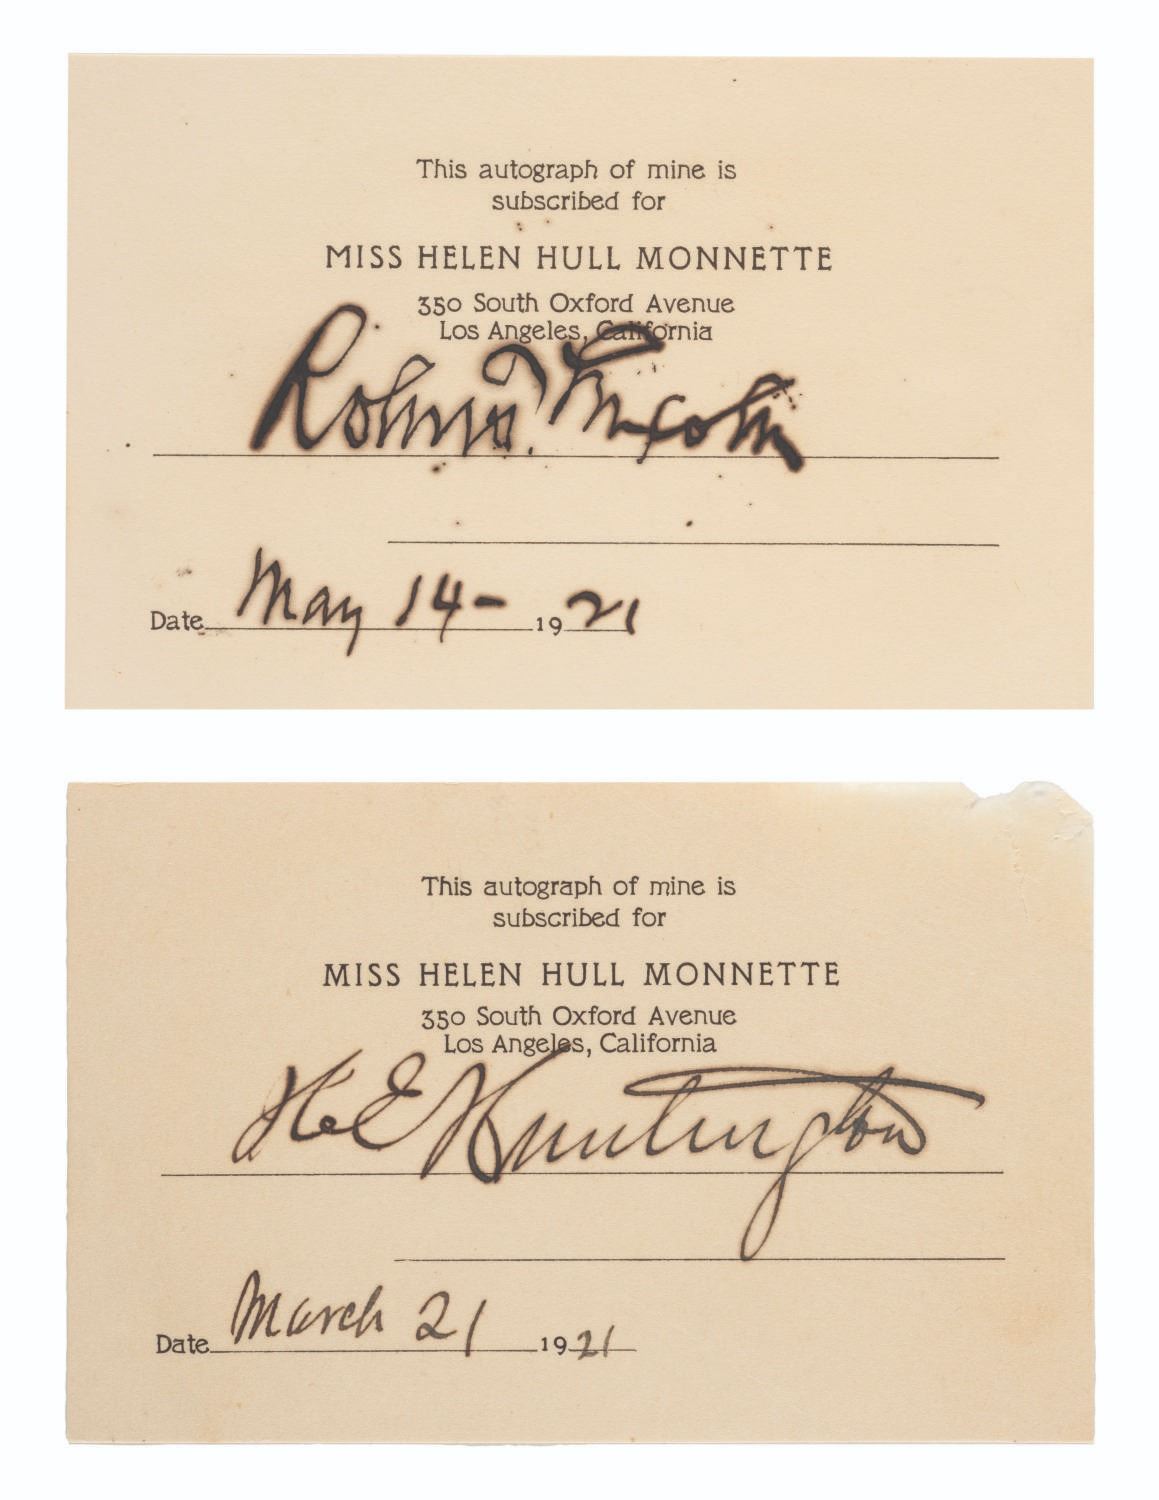 This autograph of mine is
subscribed for
MISS HELEN HULL MONNETTE
350 South Oxford Avenue
Los Angeles, California
Robert T. Lincoln
Date May 14- 1921
This autograph of mine is
subscribed for
MISS HELEN HULL MONNETTE
350 South Oxford Avenue
Los Angeles, California
H E Huntington
Date March 21 1921